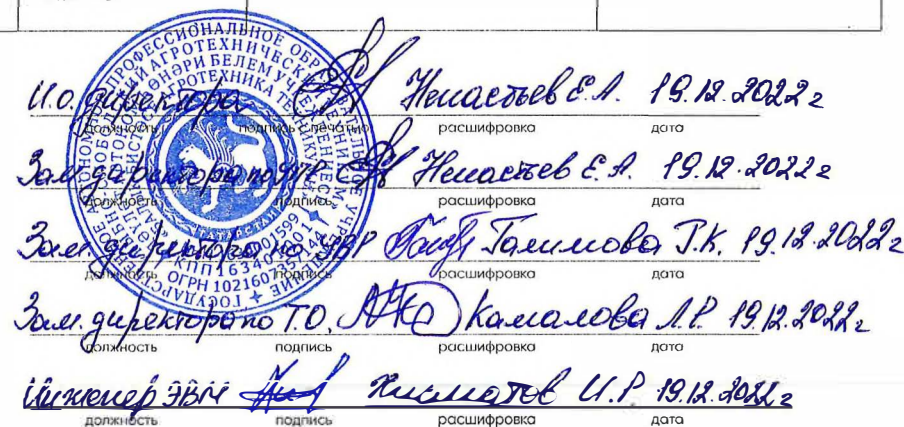 И.о. директора Ненастьев Е.А. 19.12.2022г
должность подпись с печатью расшифровка дата
Зам. директора по УПР Ненастьев Е.А. 19.12.2022г
должность подпись расшифровка дата
Зам. директора по УВР Галимова Г.К. 19.12.2022г
должность подпись расшифровка дата
Зам. директора по Т.О. Камалова Л.Р. 19.12.2022г
должность подпись расшифровка дата
Инженер ЭВМ Хисматов И.Р 19.12.2022г
должность подпись расшифровка дата
ПРОФЕССИОНАЛЬНОЕ
АГРОТЕХНИЧЕСКИЙ
БЕЛЕМ
АГРОТЕХНИКА
ТАТАРСТАН
КПП
ОГРН